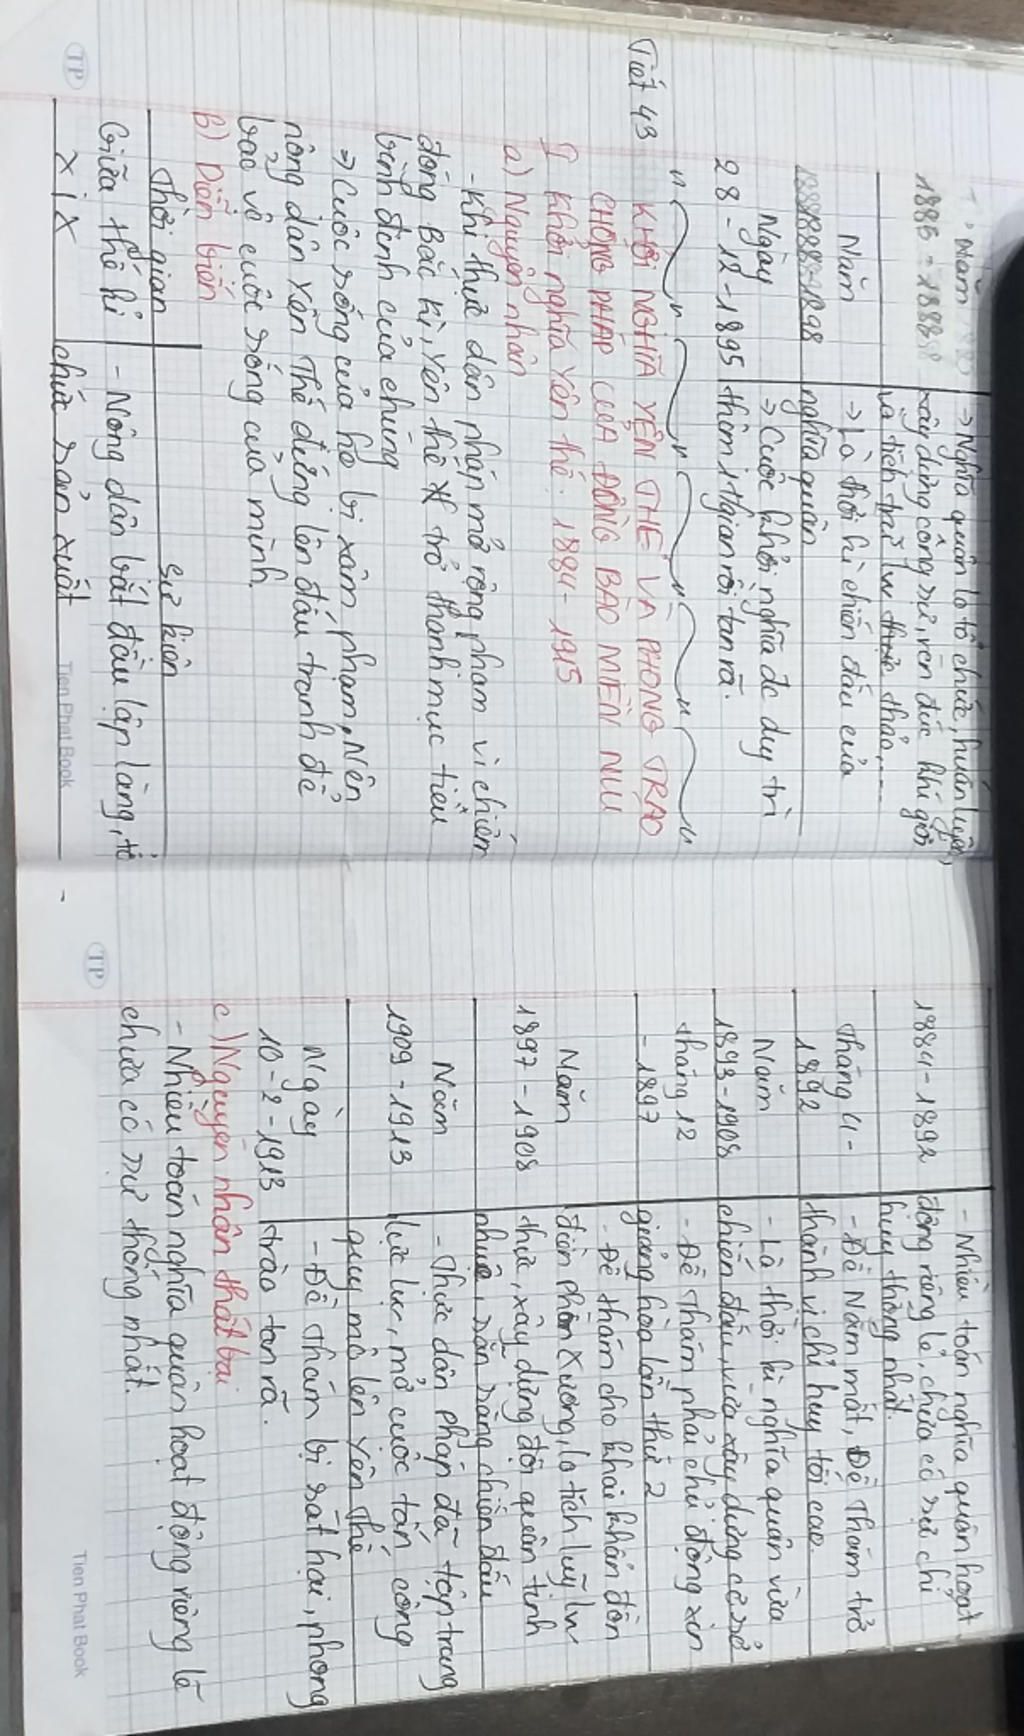 Năm
1885-1888
→ Nghĩa quân lo tổ chức, huấn luyện,
xây dựng công sự, rèn đúc khí giới
và tích trữ lương thảo,...
Năm
1888-1898
→ Là thời kì chiến đấu của
nghĩa quân
Ngày
28-12-1895
→ Cuộc khởi nghĩa đc duy trì
thêm 1 tgian rồi tan rã.
Tiết 43
KHỞI NGHĨA YÊN THẾ VÀ PHONG TRÀO
CHỐNG PHÁP CỦA ĐỒNG BÀO MIỀN NUI
I Khởi nghĩa Yên thế: 1884-1915
a) Nguyên nhân
- Khi thực dân pháp mở rộng phạm vi chiếm
đóng Bắc kì, Yên thế trở thành mục tiêu
bình định của chúng
→ Cuộc sống của họ bị xâm phạm, Nên
nông dân Yên Thế đứng lên đấu tranh để
bảo vệ cuộc sống của mình.
b) Diễn biến
Thời gian
Sự kiện
Giữa thế kỉ
XIX
- Nông dân bắt đầu lập làng, tổ
chức sản xuất
TP
Tien Phat Book
1884-1892
- Nhiều toán nghĩa quân hoạt
động riêng lẻ, chưa có sự chỉ
huy thống nhất.
Tháng 4-
1892
- Đề Nắm mất, Đề Thám trở
thành vị chỉ huy tối cao.
Năm
1893-1908
- Là thời kì nghĩa quân vừa
chiến đấu, vừa xây dựng cơ sở
tháng 12
-1897
- Đề Thám phải chủ động xin
giảng hòa lần thứ 2
Năm
1897-1908
- Đề thám cho khai khẩn đồn
điền Phồn Xương, lo tích luỹ lươn
thực, xây dựng đội quân tinh
nhuệ, sẵn sàng chiến đấu
Năm
1909-1913
- Thực dân pháp đã tập trung
lực lực, mở cuộc tấn công
quy mô lên Yên Thế
Ngày
10-2-1913
- Đề Thám bị sát hại, phong
trào tan rã.
c) Nguyên nhân thất bại
- Nhiều toán nghĩa quân hoạt động riêng lẽ
chưa có sự thống nhất.
TP
Tien Phat Book